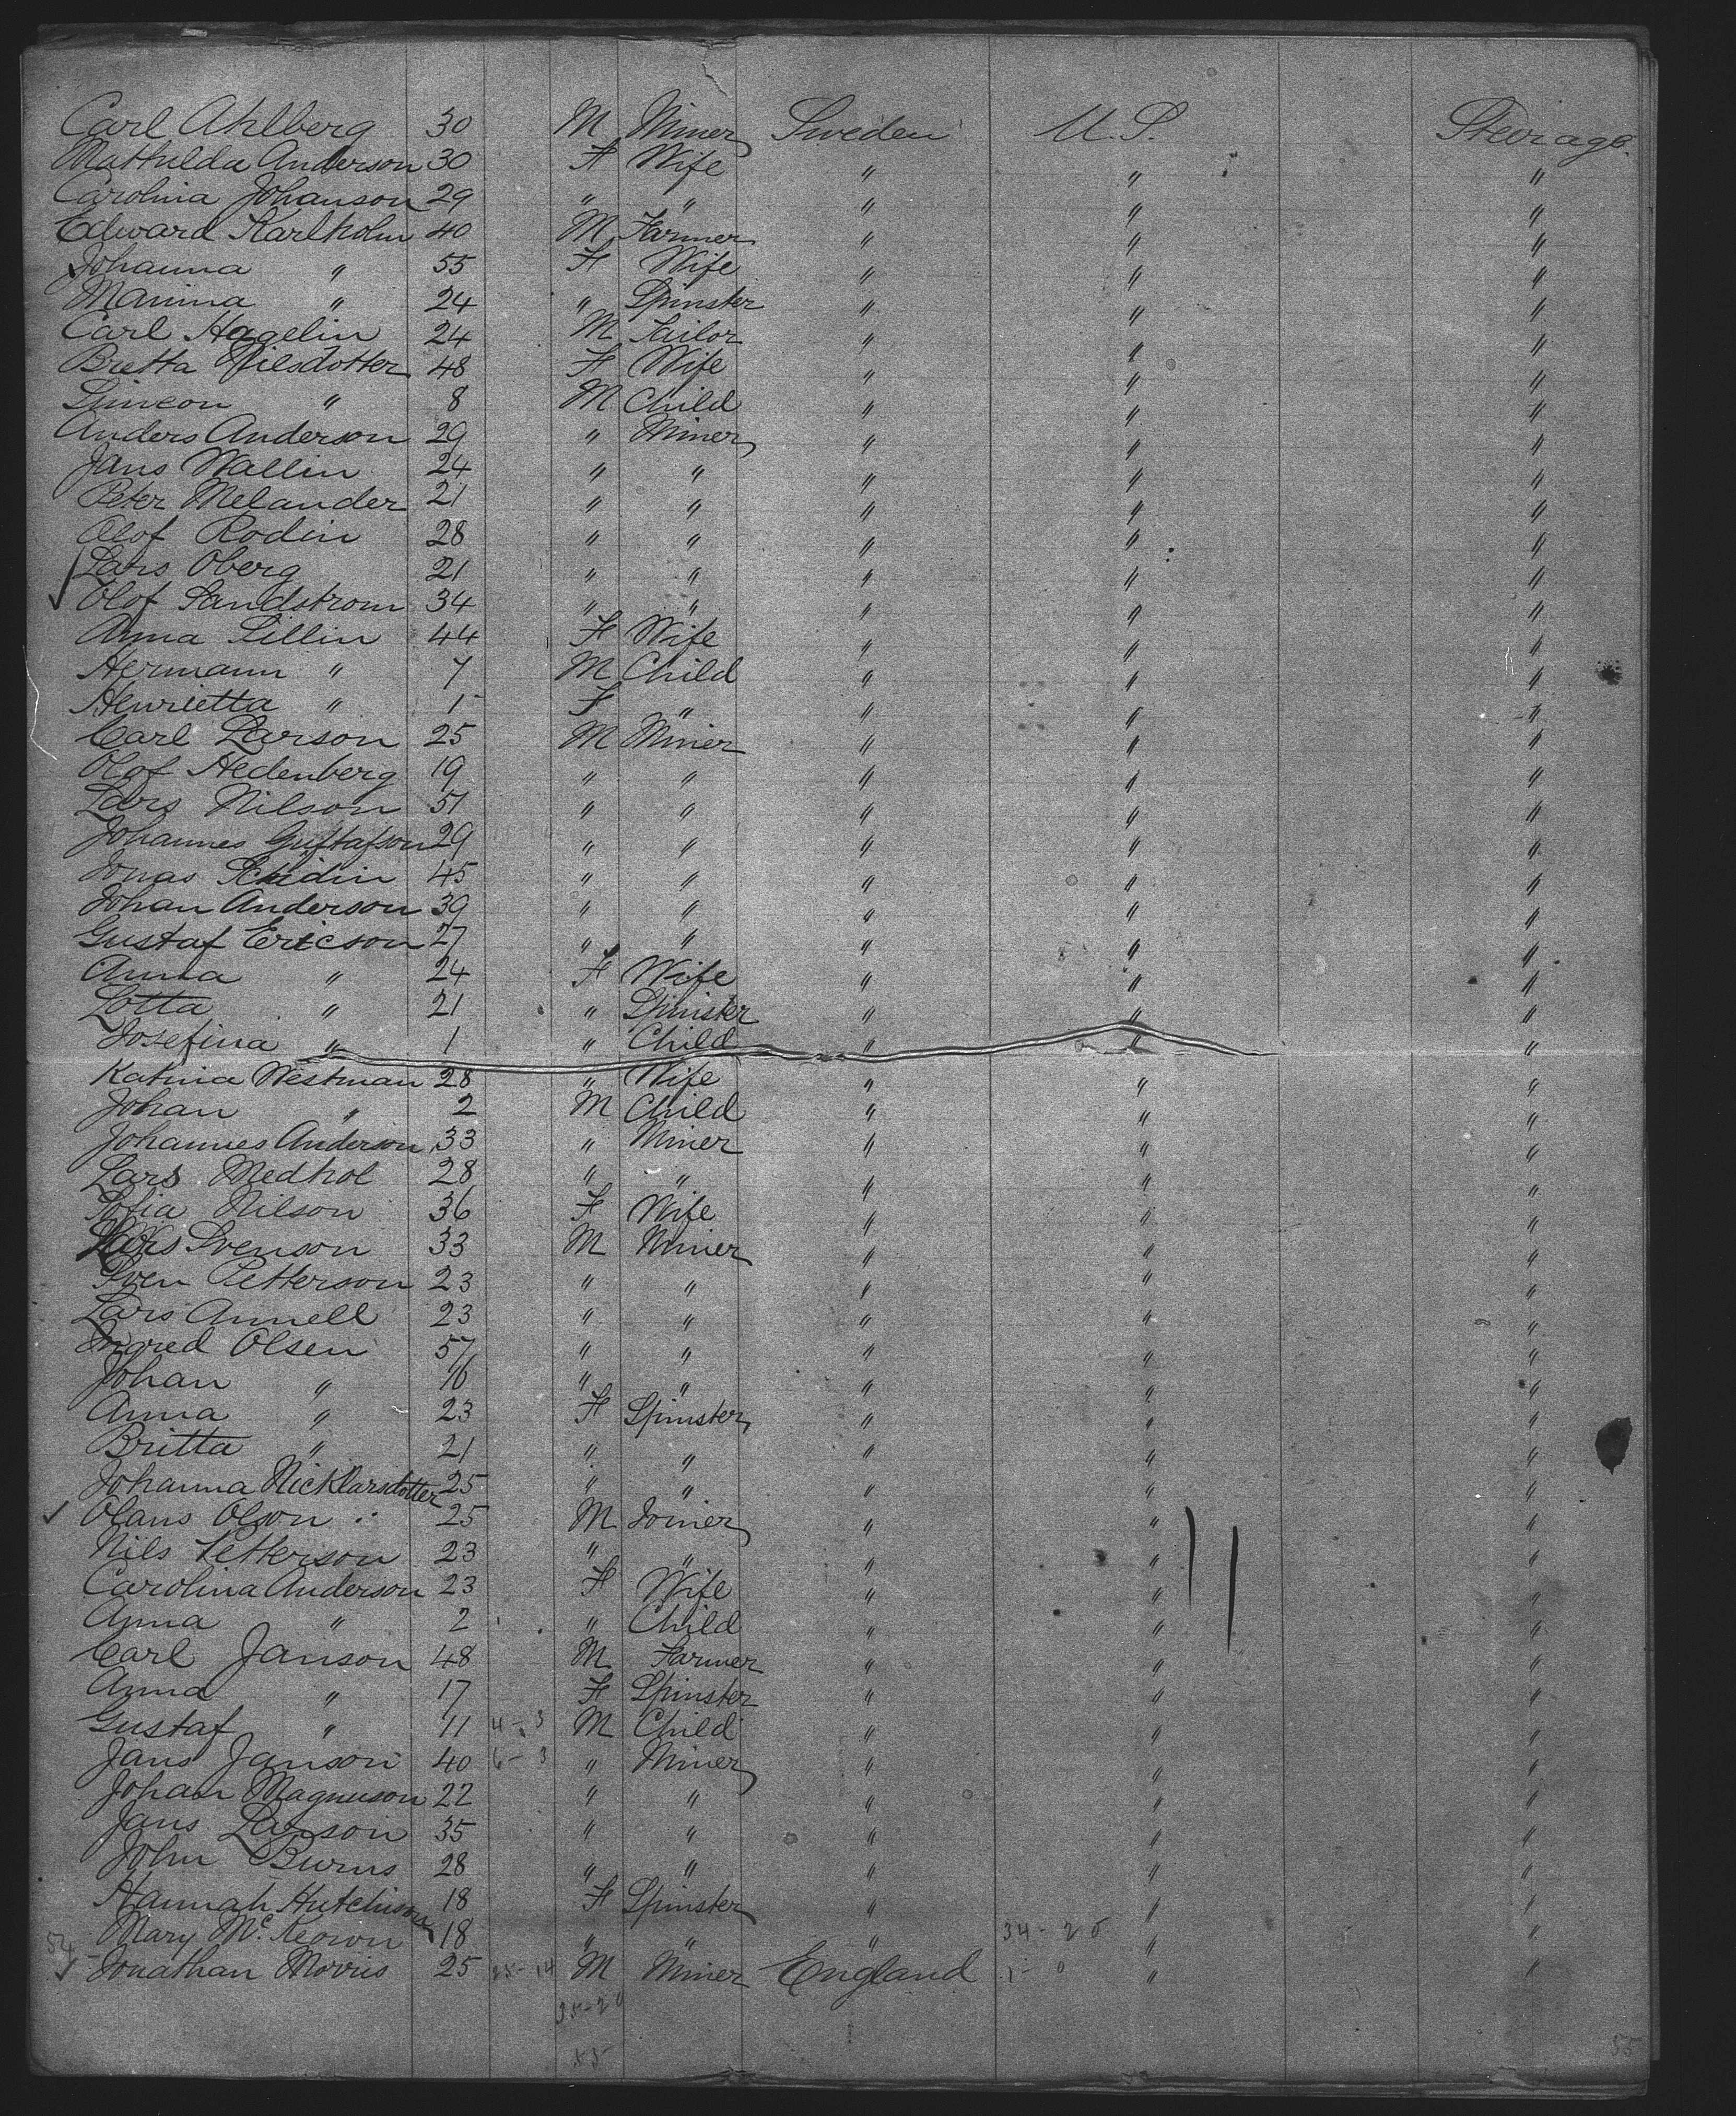 Carl Ahlberg 30 M Miner Sweden U.S. Steerage
Mathilda Anderson 30 F Wife " " "
Carolina Johanson 29 " " " " "
Edward Karlholm 40 M Farmer " " "
Johanna " 55 F Wife " " "
Manina " 24 " Spinster " " "
Carl Hagelin 24 M Tailor " " "
Britta Nilsdotter 48 F Wife " " "
Simeon " 8 M Child " " "
Anders Anderson 29 " Miner " " "
Jans Wallin 24 " " " " "
Peter Melander 21 " " " " "
Olof Rodin 28 " " " " "
Lars Oberg 21 " " " " "
Olof Sandstrom 34 " " " " "
Anna Lillin 44 F Wife " " "
Hermann " 7 M Child " " "
Henrietta " 1 F " " " "
Carl Larson 25 M Miner " " "
Olof Hedenberg 19 " " " " "
Lars Nilson 51 " " " " "
Johannes Gustafson 29 " " " " "
Jonas 45 " " " " "
Johan Anderson 39 " " " " "
Gustaf Ericson 27 " " " " "
Anna " 24 F Wife " " "
Lotta " 21 " Spinster " " "
Josefina " 1 " Child " " "
Katrina Westman 28 " Wife " " "
Johan " 2 M Child " " "
Johannes Anderson 33 " Miner " " "
Lars Medhol 28 " " " " "
Sofia Nilson 36 F Wife " " "
Lars Svenson 33 M Miner " " "
Sven Petterson 23 " " " " "
Lars Annell 23 " " " " "
Ingred Olsen 57 " " " " "
Johan " 16 " " " " "
Anna " 23 F Spinster " " "
Britta " 21 " " " " "
Johanna Nicklarsdotter 25 " " " " "
Olans Olson 25 M Joiner " " "
Nils Petterson 23 " " " " "
Carolina Anderson 23 F Wife " " "
Anna " 2 " Child " " "
Carl Janson 48 M Farmer " " "
Anna " 17 F Spinster " " "
Gustaf " 11 4-3 M Child " " "
Jans Janson 40 6-3 " Miner " " "
Johan Magnuson 22 " " " " "
Jans Larson 35 " " " " "
John Burns 28 " " " " "
Hannah Hutchison 18 F Spinster " " "
Mary McKeown 18 " " " 34-20 " "
54 Jonathan Morris 25 25-14 M Miner England 1-0 " "
35-20
55 55